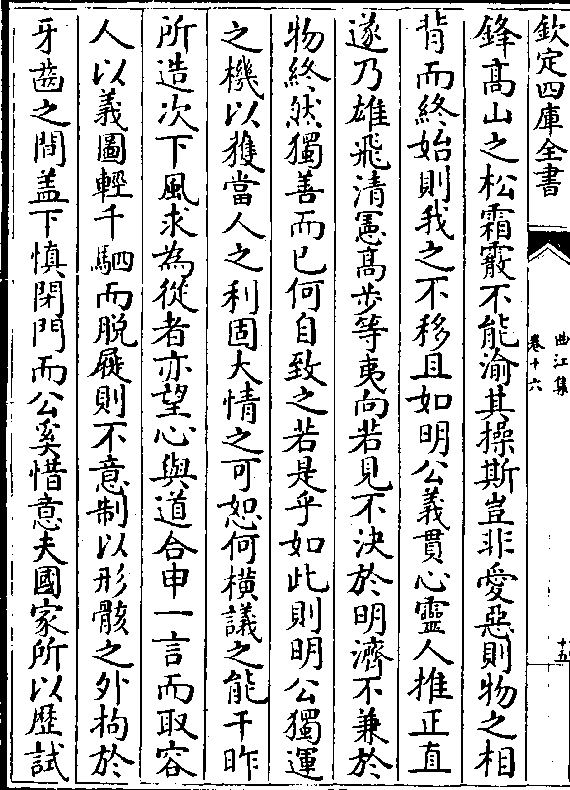 欽定四庫全書
曲江集
卷十六
十五
鋒高山之松霜霰不能渝其操斯豈非愛惡則物之相
背而終始則我之不移且如明公義貫心靈人推正直
遂乃雄飛清憲高步等夷向若見不決於明濟不兼於
物終然獨善而已何自致之若是乎如此則明公獨運
之機以獲當人之利固大情之可恕何橫議之能干昨
所造次下風求為從者亦望心與道合申一言而取容
人以義圖輕千駟而脫屣則不意制以形骸之外拘於
牙齒之間盖下慎閉門而公奚惜意夫國家所以歷試